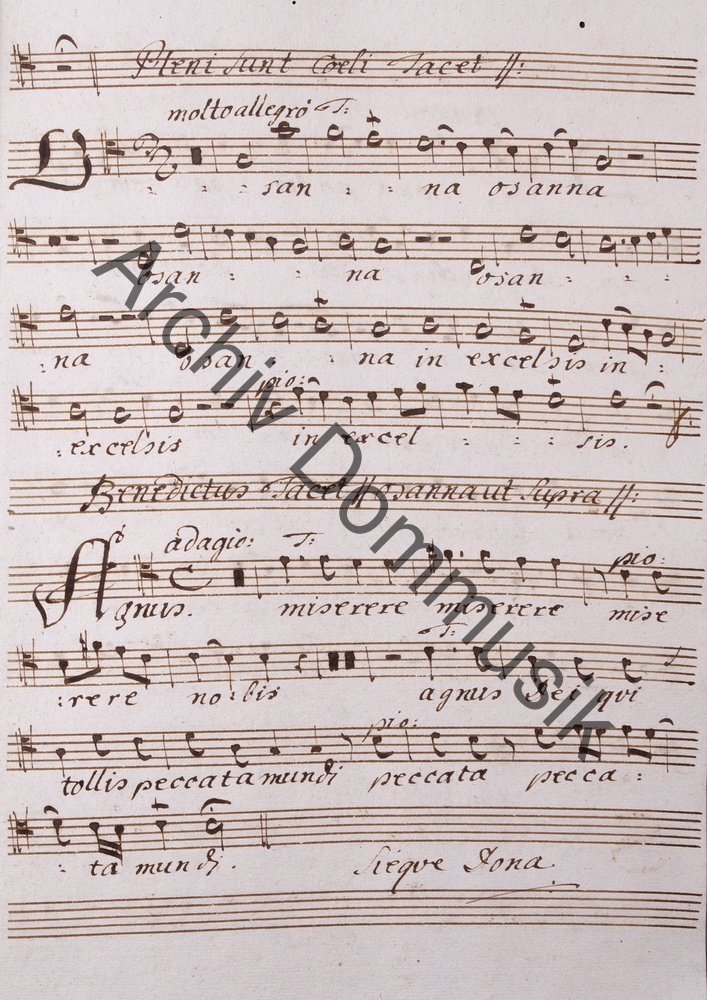 Pleni sunt Coeli Tacet //:
molto allegro T:
O san - na osanna
osan - na osan -
na osan - na in excelsis in -
pio:
excelsis in excel - sis.
Benedictus Tacet // osanna ut Supra //:
adagio: T: pio:
Agnus. miserere miserere mise
T:
:rere no:bis agnus Dei qui
pio:
tollis peccata mundi peccata pecca:
:ta mundi. Sieque Dona
Archiv Dommusik